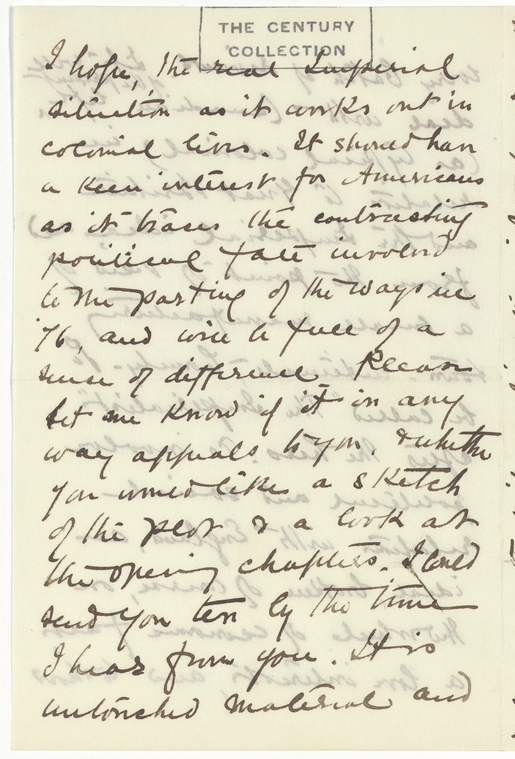 THE CENTURY
COLLECTION
I hope, the real Imperial
situation as it works out in
colonial lives. It should have
a keen interest for Americans
as it traces the contrasting
political fate involved
to the parting of the ways in
'76, and will be full of a
sense of difference. Please
let me know if it in any
way appeals to you, & whether
you would like a sketch
of the plot & a look at
the opening chapters. I could
send you ten by the time
I hear from you. It is
untouched material and